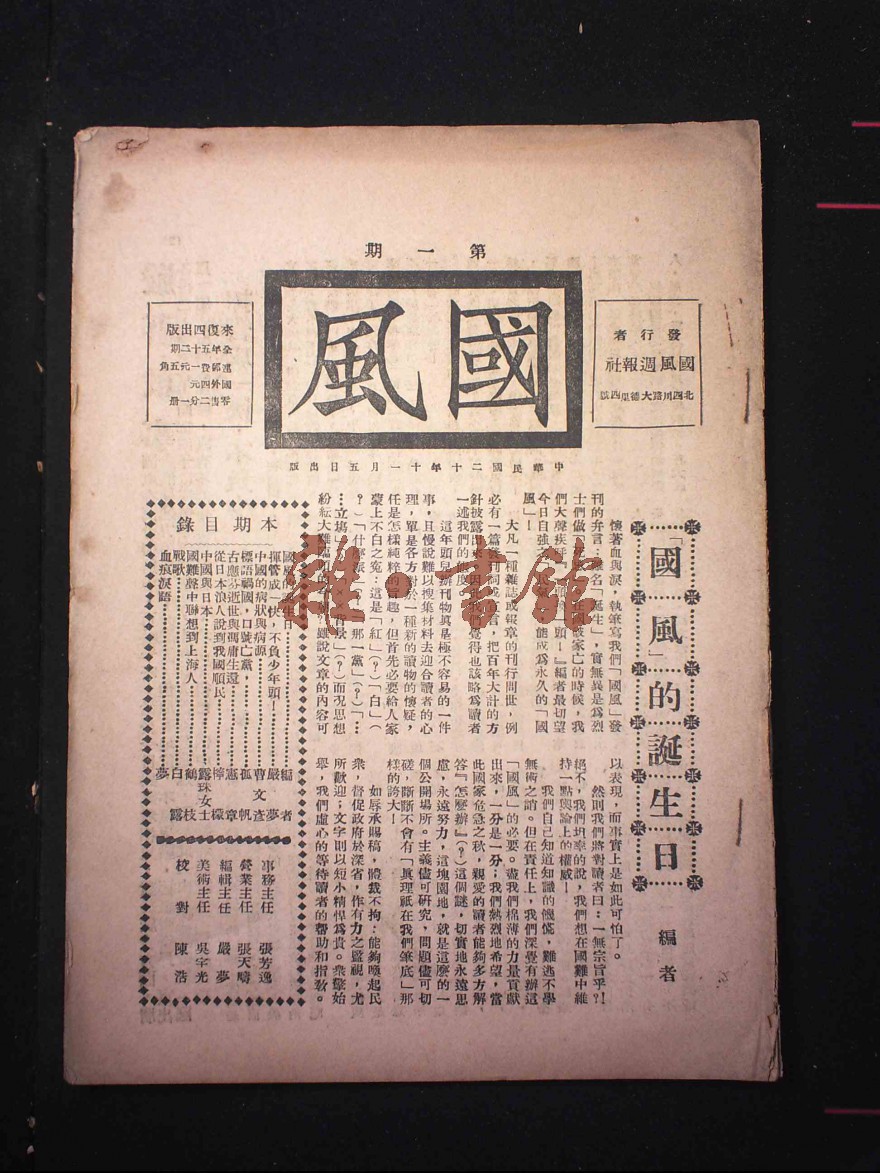 第一期
國風
發行者
國風週報社
北四川路大德里四號
來復四出版
全年五十二期
連郵費一元五角
國外四元
零售二分一册
中華民國二十年十一月五日出版
「國風」的誕生日
編者
懷著血與淚，執筆寫我們「國風」發
刊的弁言；題名「誕生」，實無異是爲烈
家亡的時候，我
們大聲疾呼
編者最切望
今日自強之
能成爲永久的「國
風」！
大凡一種雜誌或報章的刊行問世，例
必有一篇發刊詞或宣言，把百年大計的方
針披露出來，因此我們覺得也該略爲讀者
一述我們的態度。
這年頭兒辦刊物眞是極不容易的一件
事，且慢說難以搜集材料去迎合讀者的心
理，單是各方對於一種新的讀物的懷疑，
任是怎樣純粹的旨趣，但首先必要給人家
蒙上不白之寃：這是「紅」（？）「白」（
？）「什麼派」（？）「那一黨」（？）「…
…立塲」（？）「×× 背景」（？）而况思想
紛紜大難臨頭的
雖說文章的內容可
以表現，而事實上是如此可怕了。
然則我們將對讀者曰：一無宗旨乎？！
絕不，我們坦率的說，我們想在國難中維
持一點輿論上的權威！
我們自己知道知識的饑慌，難逃不學
無術之誚。但在責任上，我們深覺有辦這
「國風」的必要。盡我們棉薄的力量貢獻
出來，一分是一分；我們熱烈地希望，當
此國家危急之秋，親愛的讀者能夠多方解
答『怎麼辦』（？）這個謎，切實地永遠思
慮，永遠努力，這塊園地，就是這麼的一
個公開場所。主義儘可研究，問題儘可切
磋，斷斷不會有「眞理祇在我們筆底」那
樣的誇大！
如辱承賜稿，體裁不拘：能夠喚起民
衆，督促政府於深省，作有力之監視，尤
所歡迎；文字則以短小精悍爲貴。衆擎始
舉，我們虛心的等待讀者的帮助和指敎。
本期目錄
國風的誕生日……編者
揮管成一快，不負少年頭！……嚴夢
中國的病狀與病源……曹文彥
標語禍國，口號亡黨，……孤帆
古應芬近世與馮庸生還……憲章
從日本浪人說到我國順民……檸檬
中國與日本……露珠女士
國難聲中聯想到上海人……鶴枝
戰歌……白露
血痕淚語……夢
事務主任　張芳逸
營業主任　張天疇
編輯主任　嚴夢
美術主任　吳宇光
校對　陳浩
雜·書館